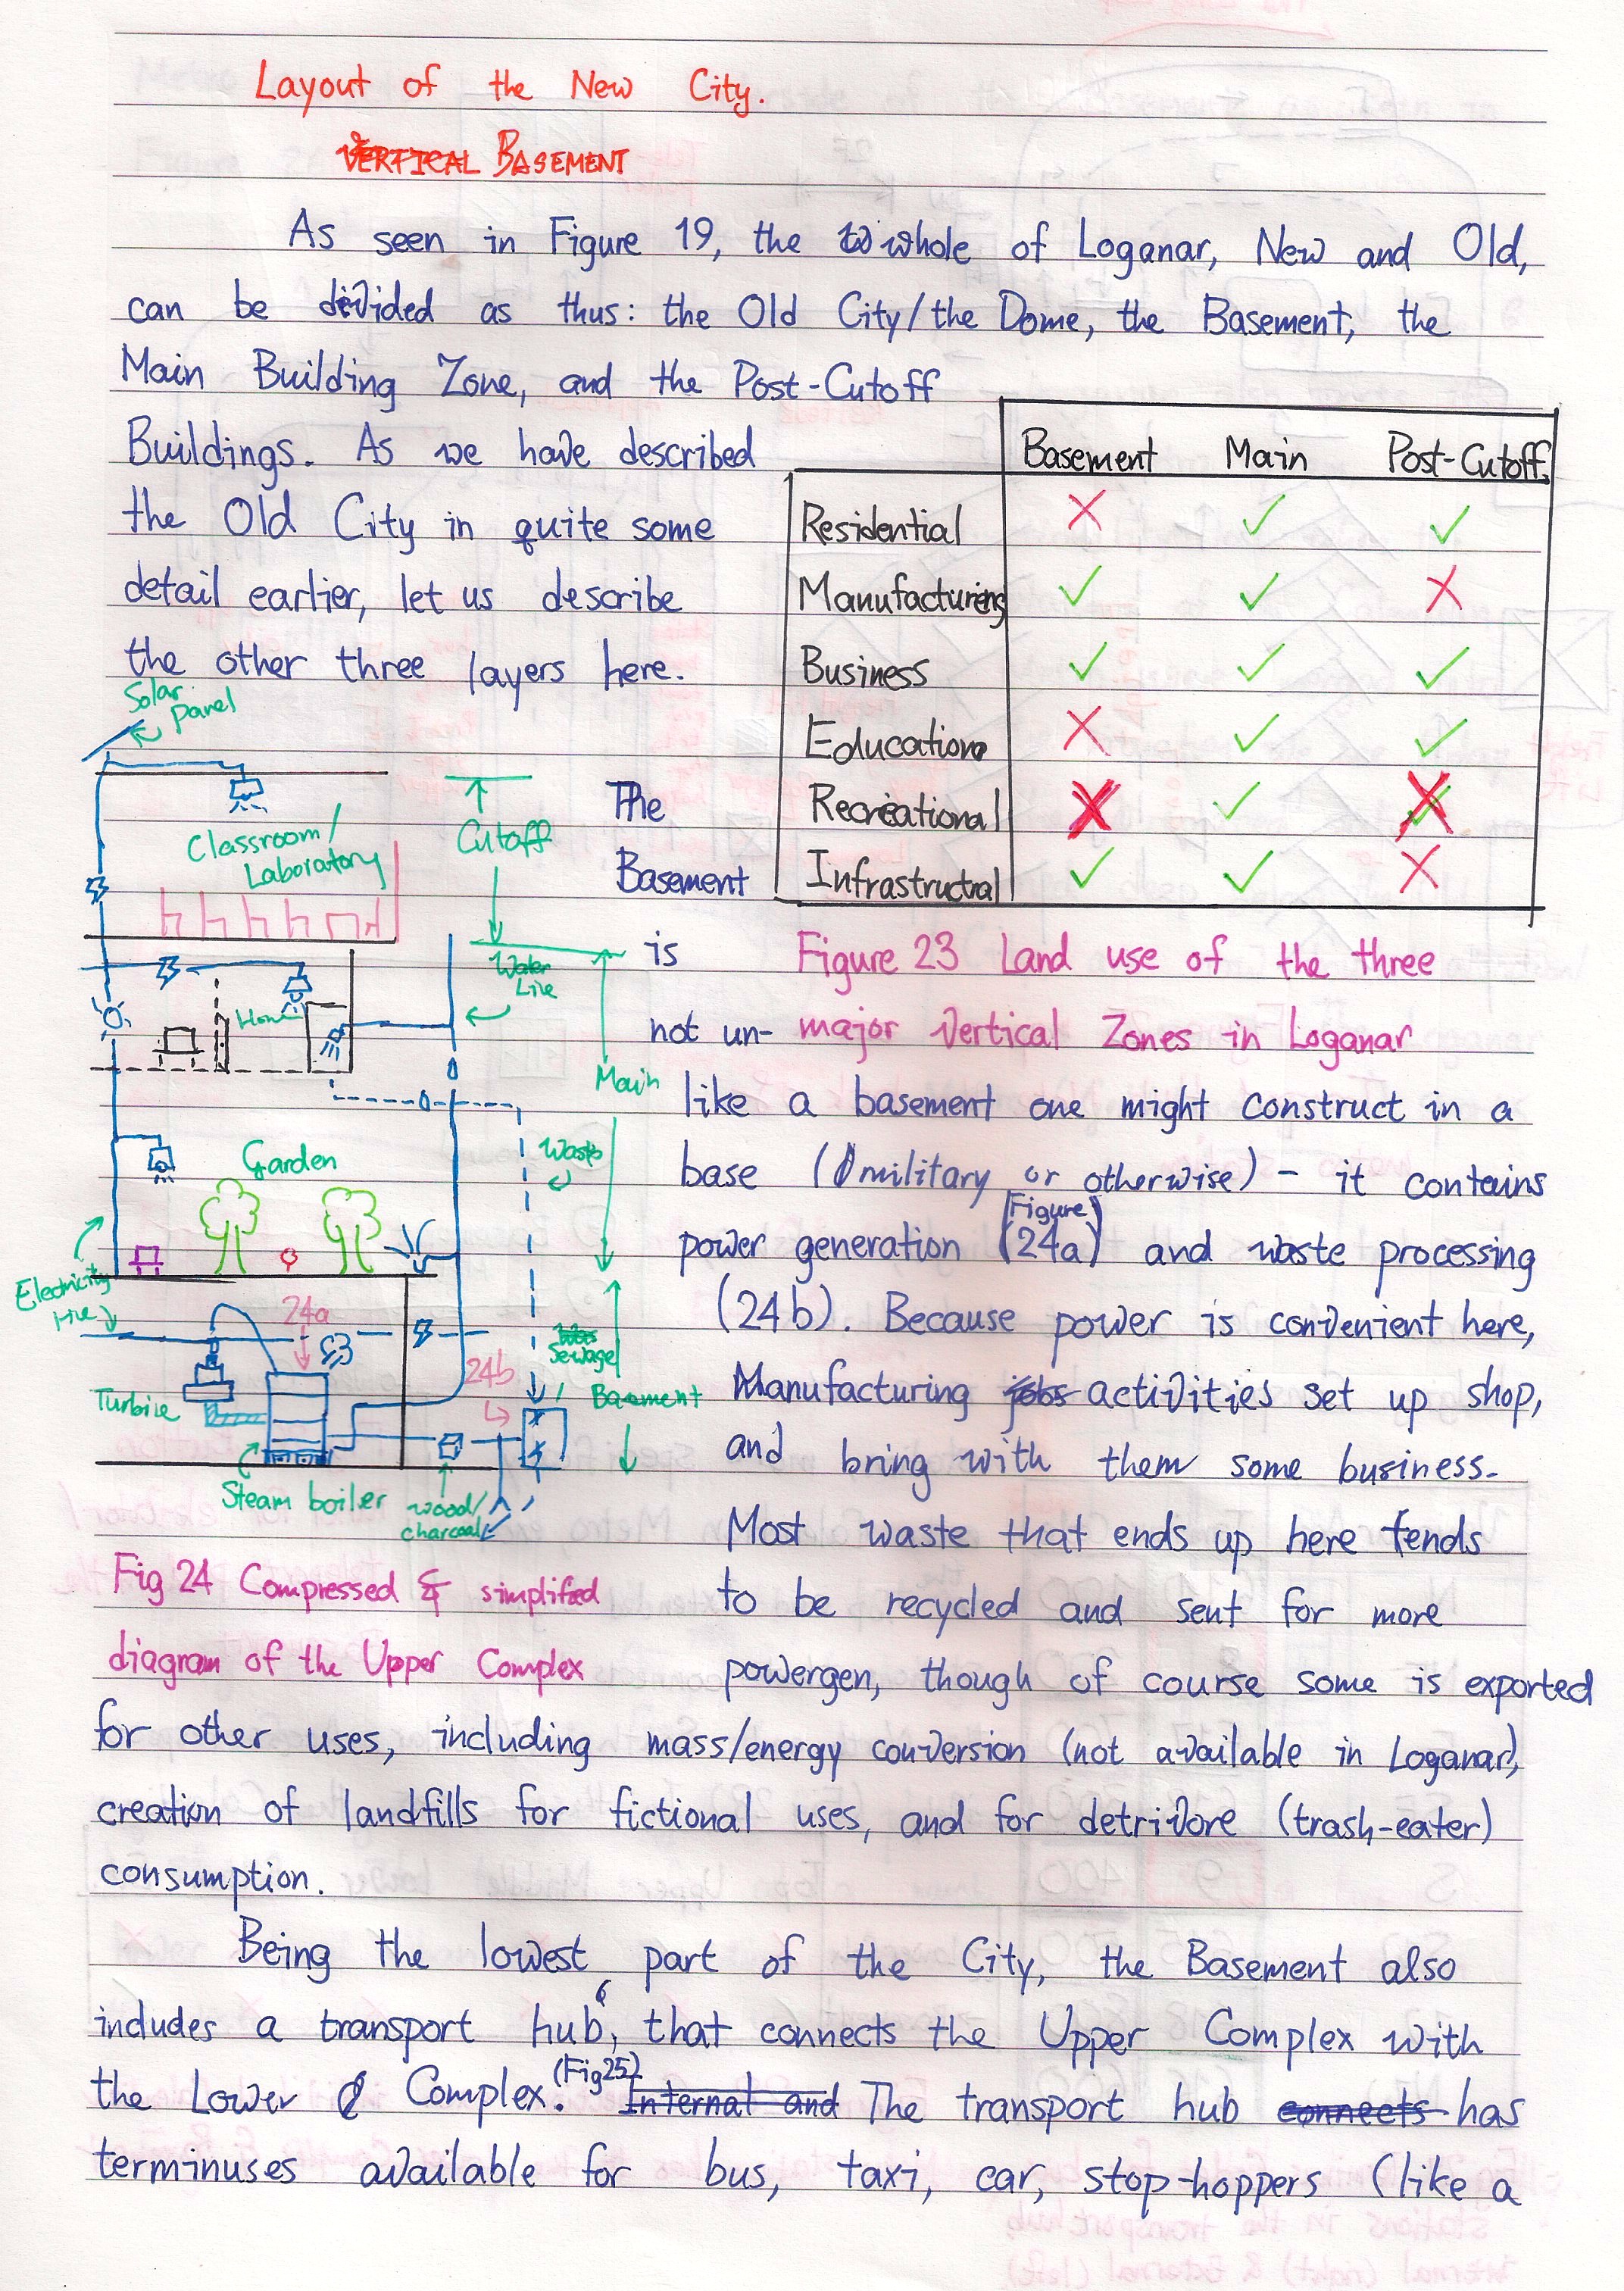 Layout of the New City.
VERTICAL BASEMENT
As seen in Figure 19, the whole of Loganar, New and Old,
can be divided as thus: the Old City/the Dome, the Basement, the
Main Building Zone, and the Post-Cutoff
Buildings. As we have described
the Old City in quite some
detail earlier, let us describe
the other three layers here.
Basement Main Post-Cutoff
Residential ✗ ✓ ✓
Manufacturing ✓ ✓ ✗
Business ✓ ✓ ✓
Education ✗ ✓ ✓
Recreational ✗ ✓ ✗
Infrastructral ✓ ✓ ✗
Figure 23 Land use of the three
major Vertical Zones in Loganar
Solar
Panel
Classroom/
Laboratory
Cutoff
Water
Line
Home
Main
Waste
Garden
Electricity
line
24a
Sewage
24b
Basement
Turbine
Steam boiler
wood/
charcoal
Fig 24 Compressed & simplified
diagram of the Upper Complex
The
Basement
is
not un-
like a basement one might construct in a
base (military or otherwise) - it contains
power generation (Figure 24a) and waste processing
(24b). Because power is convenient here,
Manufacturing jobs activities set up shop,
and bring with them some business.
Most waste that ends up here tends
to be recycled and sent for more
powergen, though of course some is exported
for other uses, including mass/energy conversion (not available in Loganar),
creation of landfills for fictional uses, and for detrivore (trash-eater)
consumption.
Being the lowest part of the City, the Basement also
includes a transport hub, that connects the Upper Complex with
the Lower Complex. (Fig 25) Internal and The transport hub connects has
terminuses available for bus, taxi, car, stop-hoppers (like a